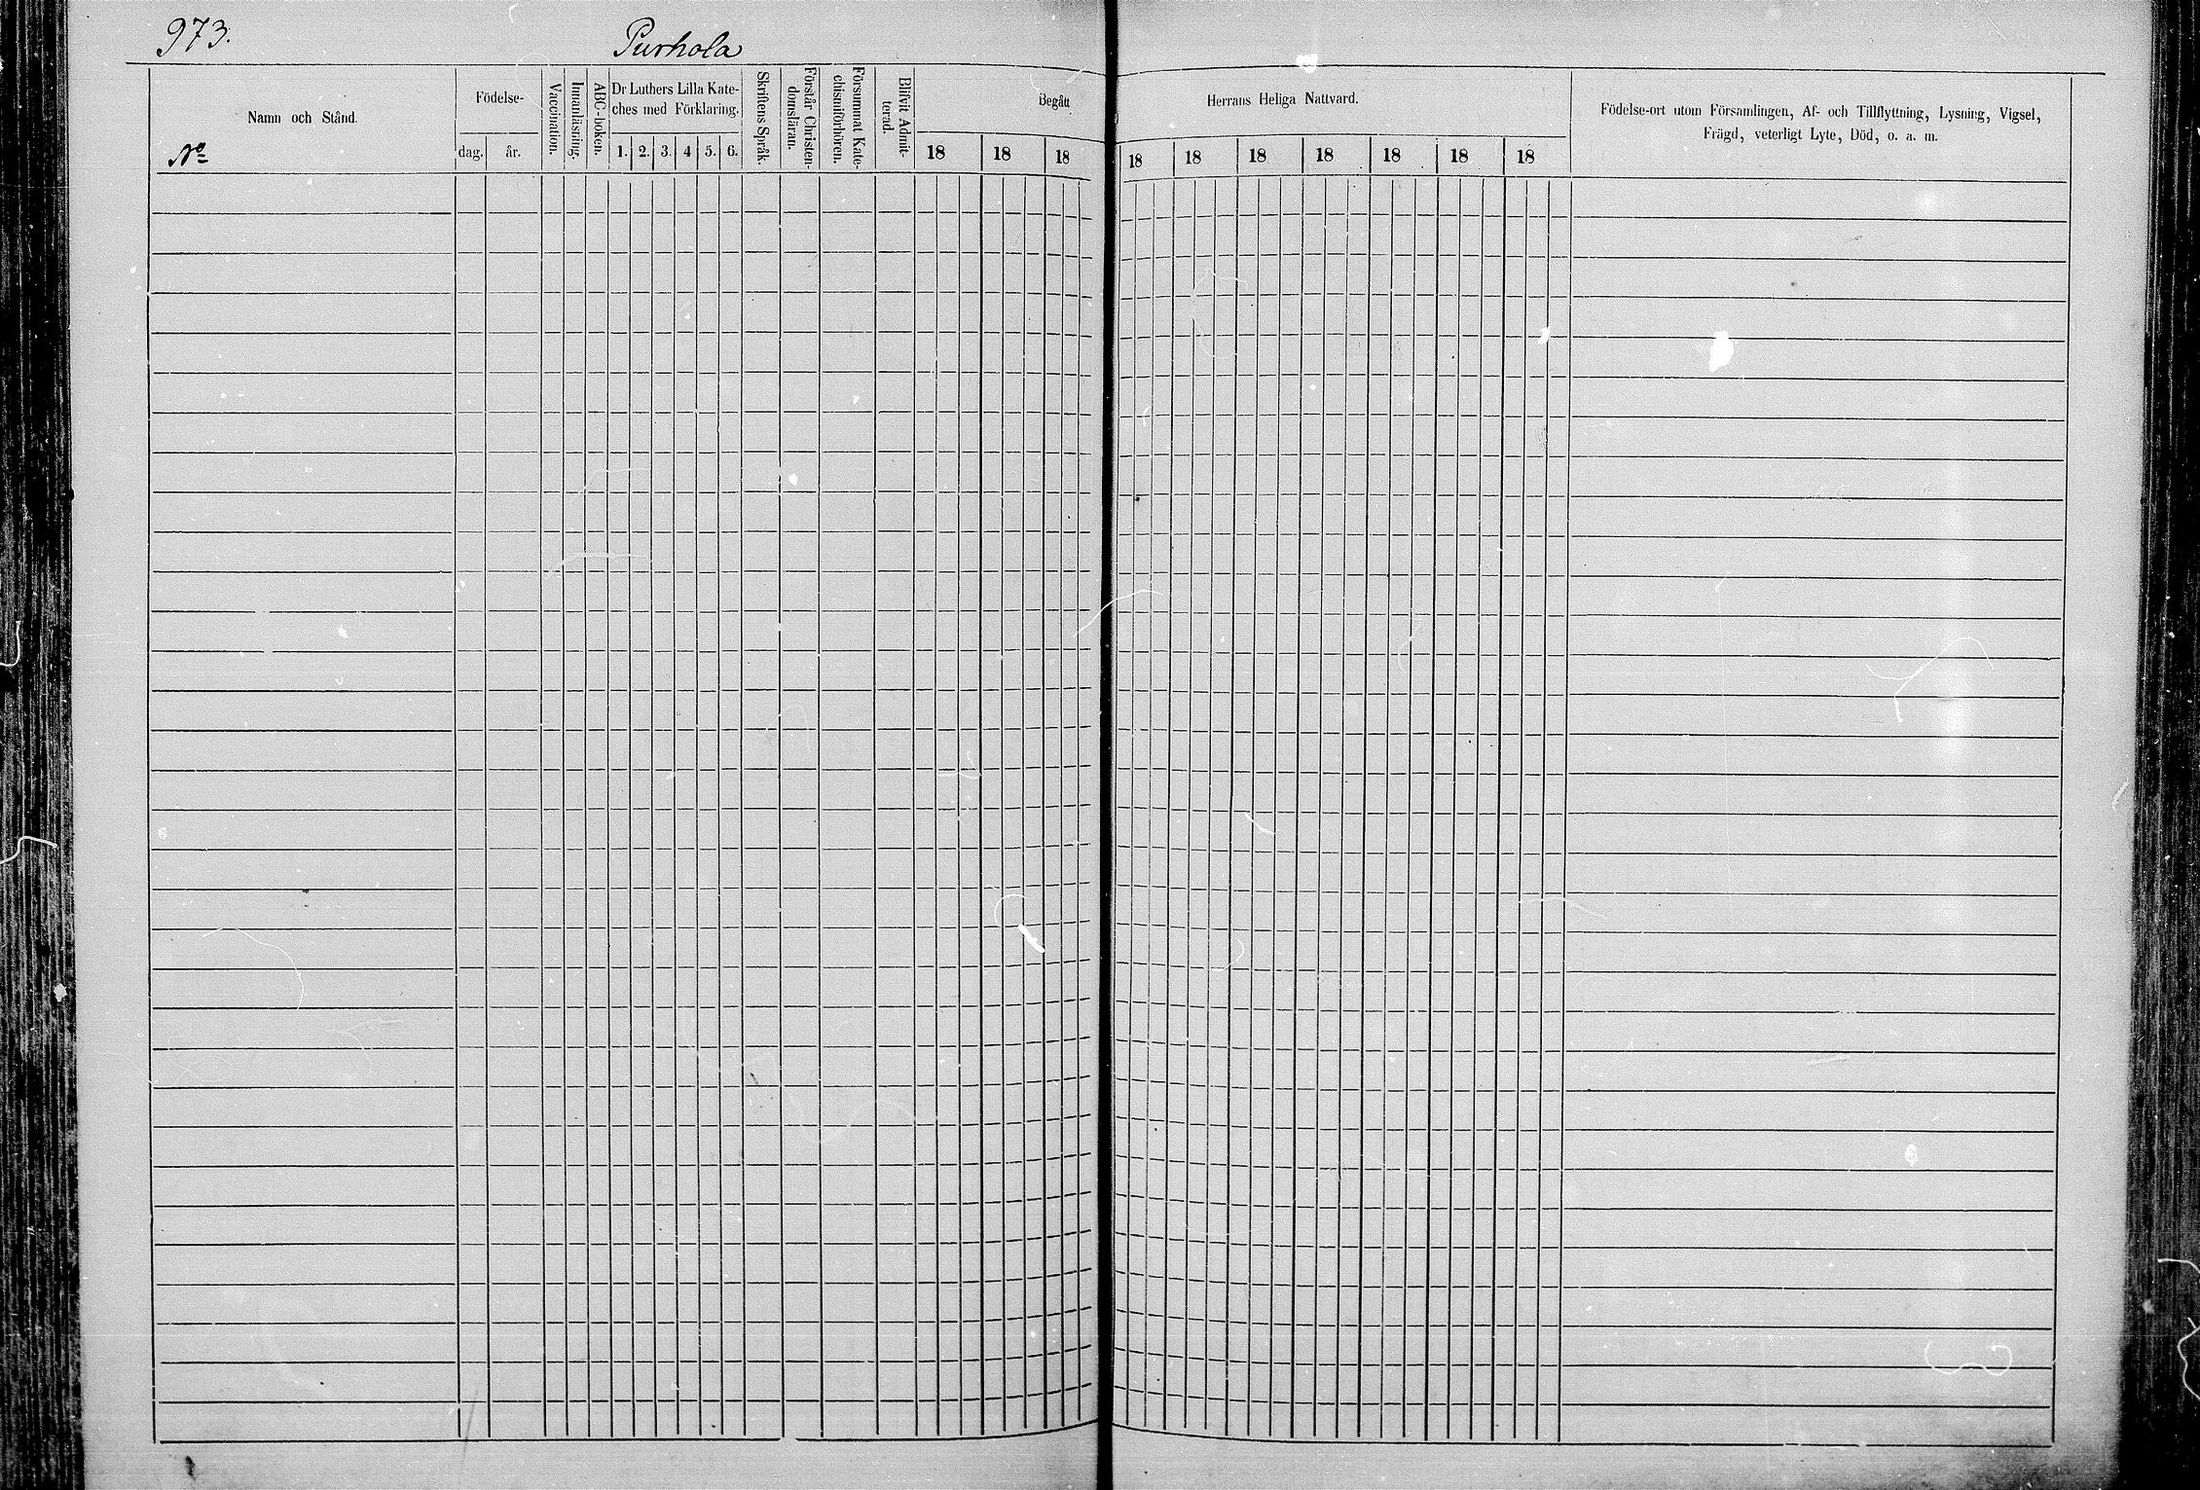 973.
Purhola
Namn och Stånd.
No
Födelse-
dag.
år.
Vaccination.
Innanläsning.
ABC-boken.
Dr Luthers Lilla Kate-
ches med Förklaring.
1. 2. 3. 4 5. 6.
Skriftens Språk.
Förstår Christen-
domsläran.
Försummat Kate-
chismiförhören.
Blifvit Admit-
terad.
Begått
18 18 18
Herrans Heliga Nattvard.
18 18 18 18 18 18 18
Födelse-ort utom Församlingen, Af- och Tillflyttning, Lysning, Vigsel,
Frägd, veterligt Lyte, Död, o. a. m.